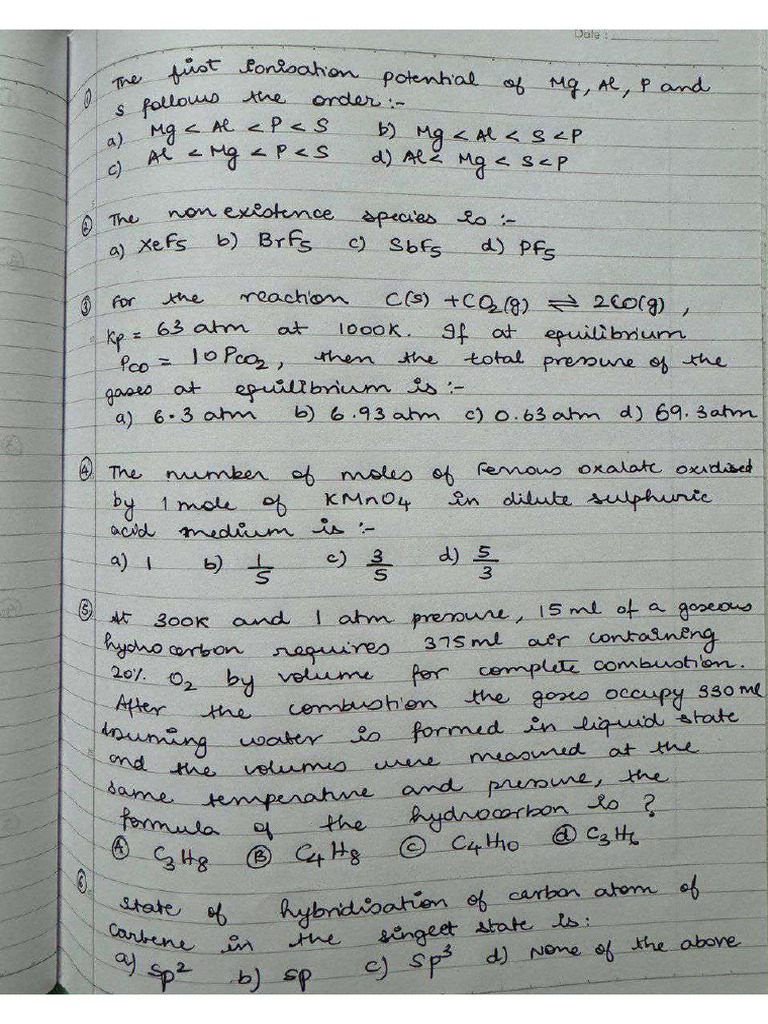 Date :
① The first ionisation potential of Mg, Al, P and
S follows the order:-
a) Mg < Al < P < S b) Mg < Al < S < P
c) Al < Mg < P < S d) Al < Mg < S < P
② The non existence species is :-
a) XeF5 b) BrF5 c) SbF5 d) PF5
③ For the reaction C(s) + CO2(g) ⇌ 2CO(g) ,
Kp = 63 atm at 1000K. If at equilibrium
PCO = 10PCO2, then the total pressure of the
gases at equilibrium is :-
a) 6.3 atm b) 6.93 atm c) 0.63 atm d) 69.3 atm
④ The number of moles of Ferrous oxalate oxidised
by 1 mole of KMnO4 in dilute sulphuric
acid medium is :-
a) 1 b) 1/5 c) 3/5 d) 5/3
⑤ At 300K and 1 atm pressure, 15 ml of a gaseous
hydrocarbon requires 375 ml air containing
20% O2 by volume for complete combustion.
After the combustion the gases occupy 330 ml
Assuming water is formed in liquid state
and the volumes were measured at the
same temperature and pressure, the
formula of the hydrocarbon is ?
Ⓐ C3H8 Ⓑ C4H8 Ⓒ C4H10 ⓓ C3H6
⑥ State of hybridisation of carbon atom of
carbene in the singeet state is:
a) sp2 b) sp c) sp3 d) None of the above